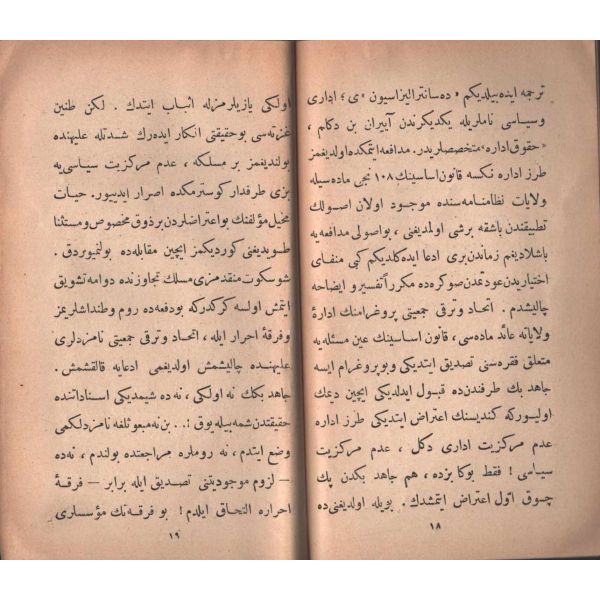 ترجمه ایده‌بیلدیکم «ده‌سانترالیزاسیون» ی؛ اداری
و سیاسی ناملریله یکدیکرندن آییران بن دکلم،
«حقوق اداره» متخصصلریدر. مدافعه ایتمکده اولدیغمز
طرز اداره نکسه قانون اساسینك ۱۰۸ نجی ماده‌سیله
ولایات نظامنامه‌سنده موجود اولان اصولك
تطبیقندن باشقه برشی اولمدیغنی، بواصولی مدافعه‌یه
باشلادیغم زماندن بری ادعا ایده‌کلدیکم کبی منفای
اختیاریدن عودتمدن صوکره‌ده مکرراً تفسیر و ایضاحه
چالیشدم. اتحاد و ترقی جمعیتی پروغرامنك ادارهٔ
ولایاته عائد ماده‌سی، قانون اساسینك عین مسئله‌یه
متعلق فقره‌سنی تصدیق ایتدیکی و بو پروغرام ایسه
جاهد بك طرفندن‌ده قبول ایدلدیکی ایچین دیمك
اولیورکه کندیسنك اعتراض ایتدیکی طرز اداره
عدم مرکزیت اداری دکل، عدم مرکزیت
سیاسی! فقط بوکا بزده، هم جاهد بکدن پك
چوق اوّل اعتراض ایتمشدك. بویله اولدیغنی‌ده
۱۸
اولکی یازیلرمزله اثبات ایتدك. لکن طنین
غزته‌سی بوحقیقتی انکار ایده‌رك شدتله علیهنده
بولندیغمز بر مسلکه، عدم مرکزیت سیاسی‌یه
بزی طرفدار کوسترمکده اصرار ایدییور. حیات
مخیل مؤلفنك بواعتراضلردن برذوق مخصوص ومستثنا
طویدیغنی کوردیکمز ایچین مقابله‌ده بولنمیوردق.
شو سکوت منقدمزی مسلك تجاوزنده دوامه تشویق
ایتمش اولسه کرکدرکه بودفعه‌ده روم وطنداشلریمز
و فرقهٔ احرار ایله، اتحاد و ترقی جمعیتی نامزدلری
علیهنده چالیشمش اولدیغمی ادعایه قالقشمش.
جاهد بکك نه اولکی، نه‌ده شیمدیکی اسناداتنده
حقیقتدن شمه‌بیله یوق!.. بن نه مبعوثلغه نامزدلکمی
وضع ایتدم، نه روملره مراجعتده بولندم، نه‌ده
— لزوم موجودیتنی تصدیق ایله برابر — فرقهٔ
احراره التحاق ایلدم! بو فرقه‌نك مؤسسلری
۱۹